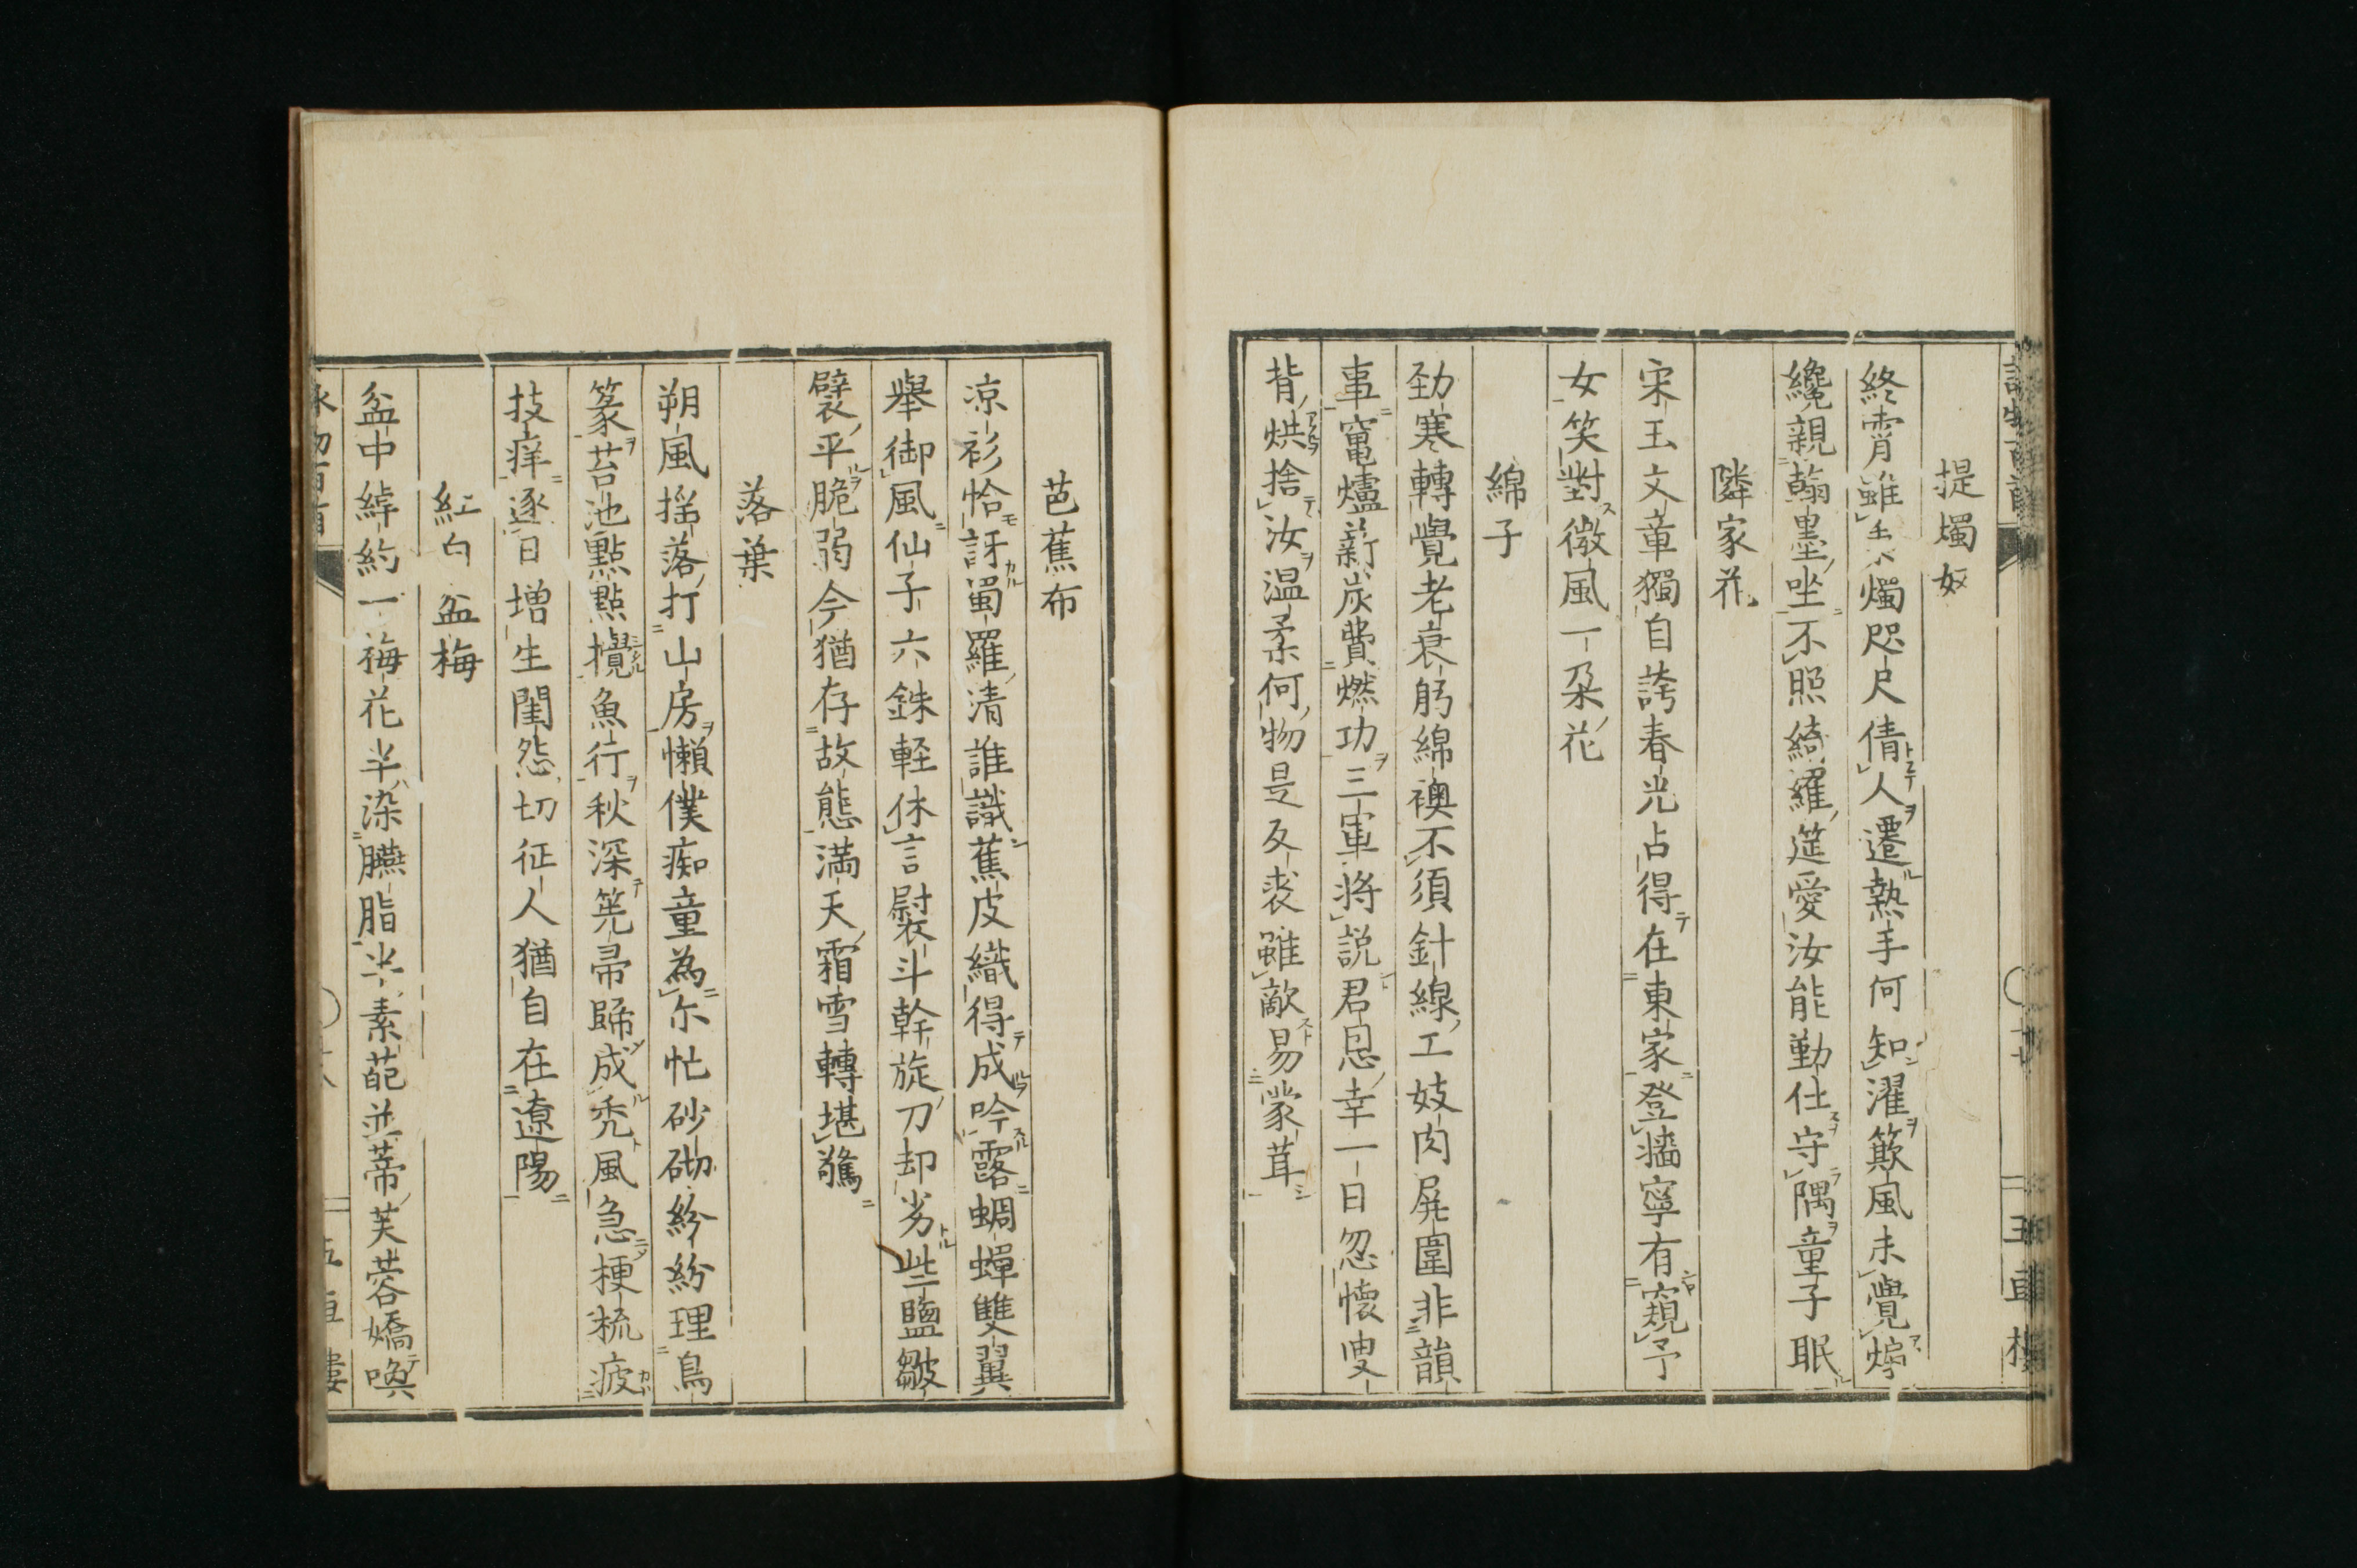 提燭奴
終宵雖秉燭咫尺倩人遷熱手何知濯欺風未覺㷮
纔親翰墨坐不照綺羅筵愛汝能勤仕守隅童子眠
隣家花
宋玉文章獨自誇春光占得在東家登牆寧有窺予
女笑對微風一朶花
綿子
勁寒轉覺老衰躬綿襖不須針線工妓肉屏圍非韻
事竃爐薪炭費燃功三軍將說君恩幸一日忽懷叟
背烘捨汝温柔何物是反裘雖敵易蒙茸
芭蕉布
凉衫恰訝蜀羅清誰識蕉皮織得成吟露蜩蟬雙翼
舉御風仙子六銖軽休言尉裂斗幹旋刀却劣些鹽皺
襞平脆弱今猶存故態満天霜雪轉堪驚
落葉
朔風揺落打山房懶僕痴童為尓忙砂砌紛紛理鳥
篆苔池點點攪魚行秋深筅帚歸成禿風急梗梳疲
技痒逐日増生閨怨切征人猶自在遼陽
紅白盆梅
盆中綽約一梅花半染臙脂半素葩並蒂芙蓉嬌喚